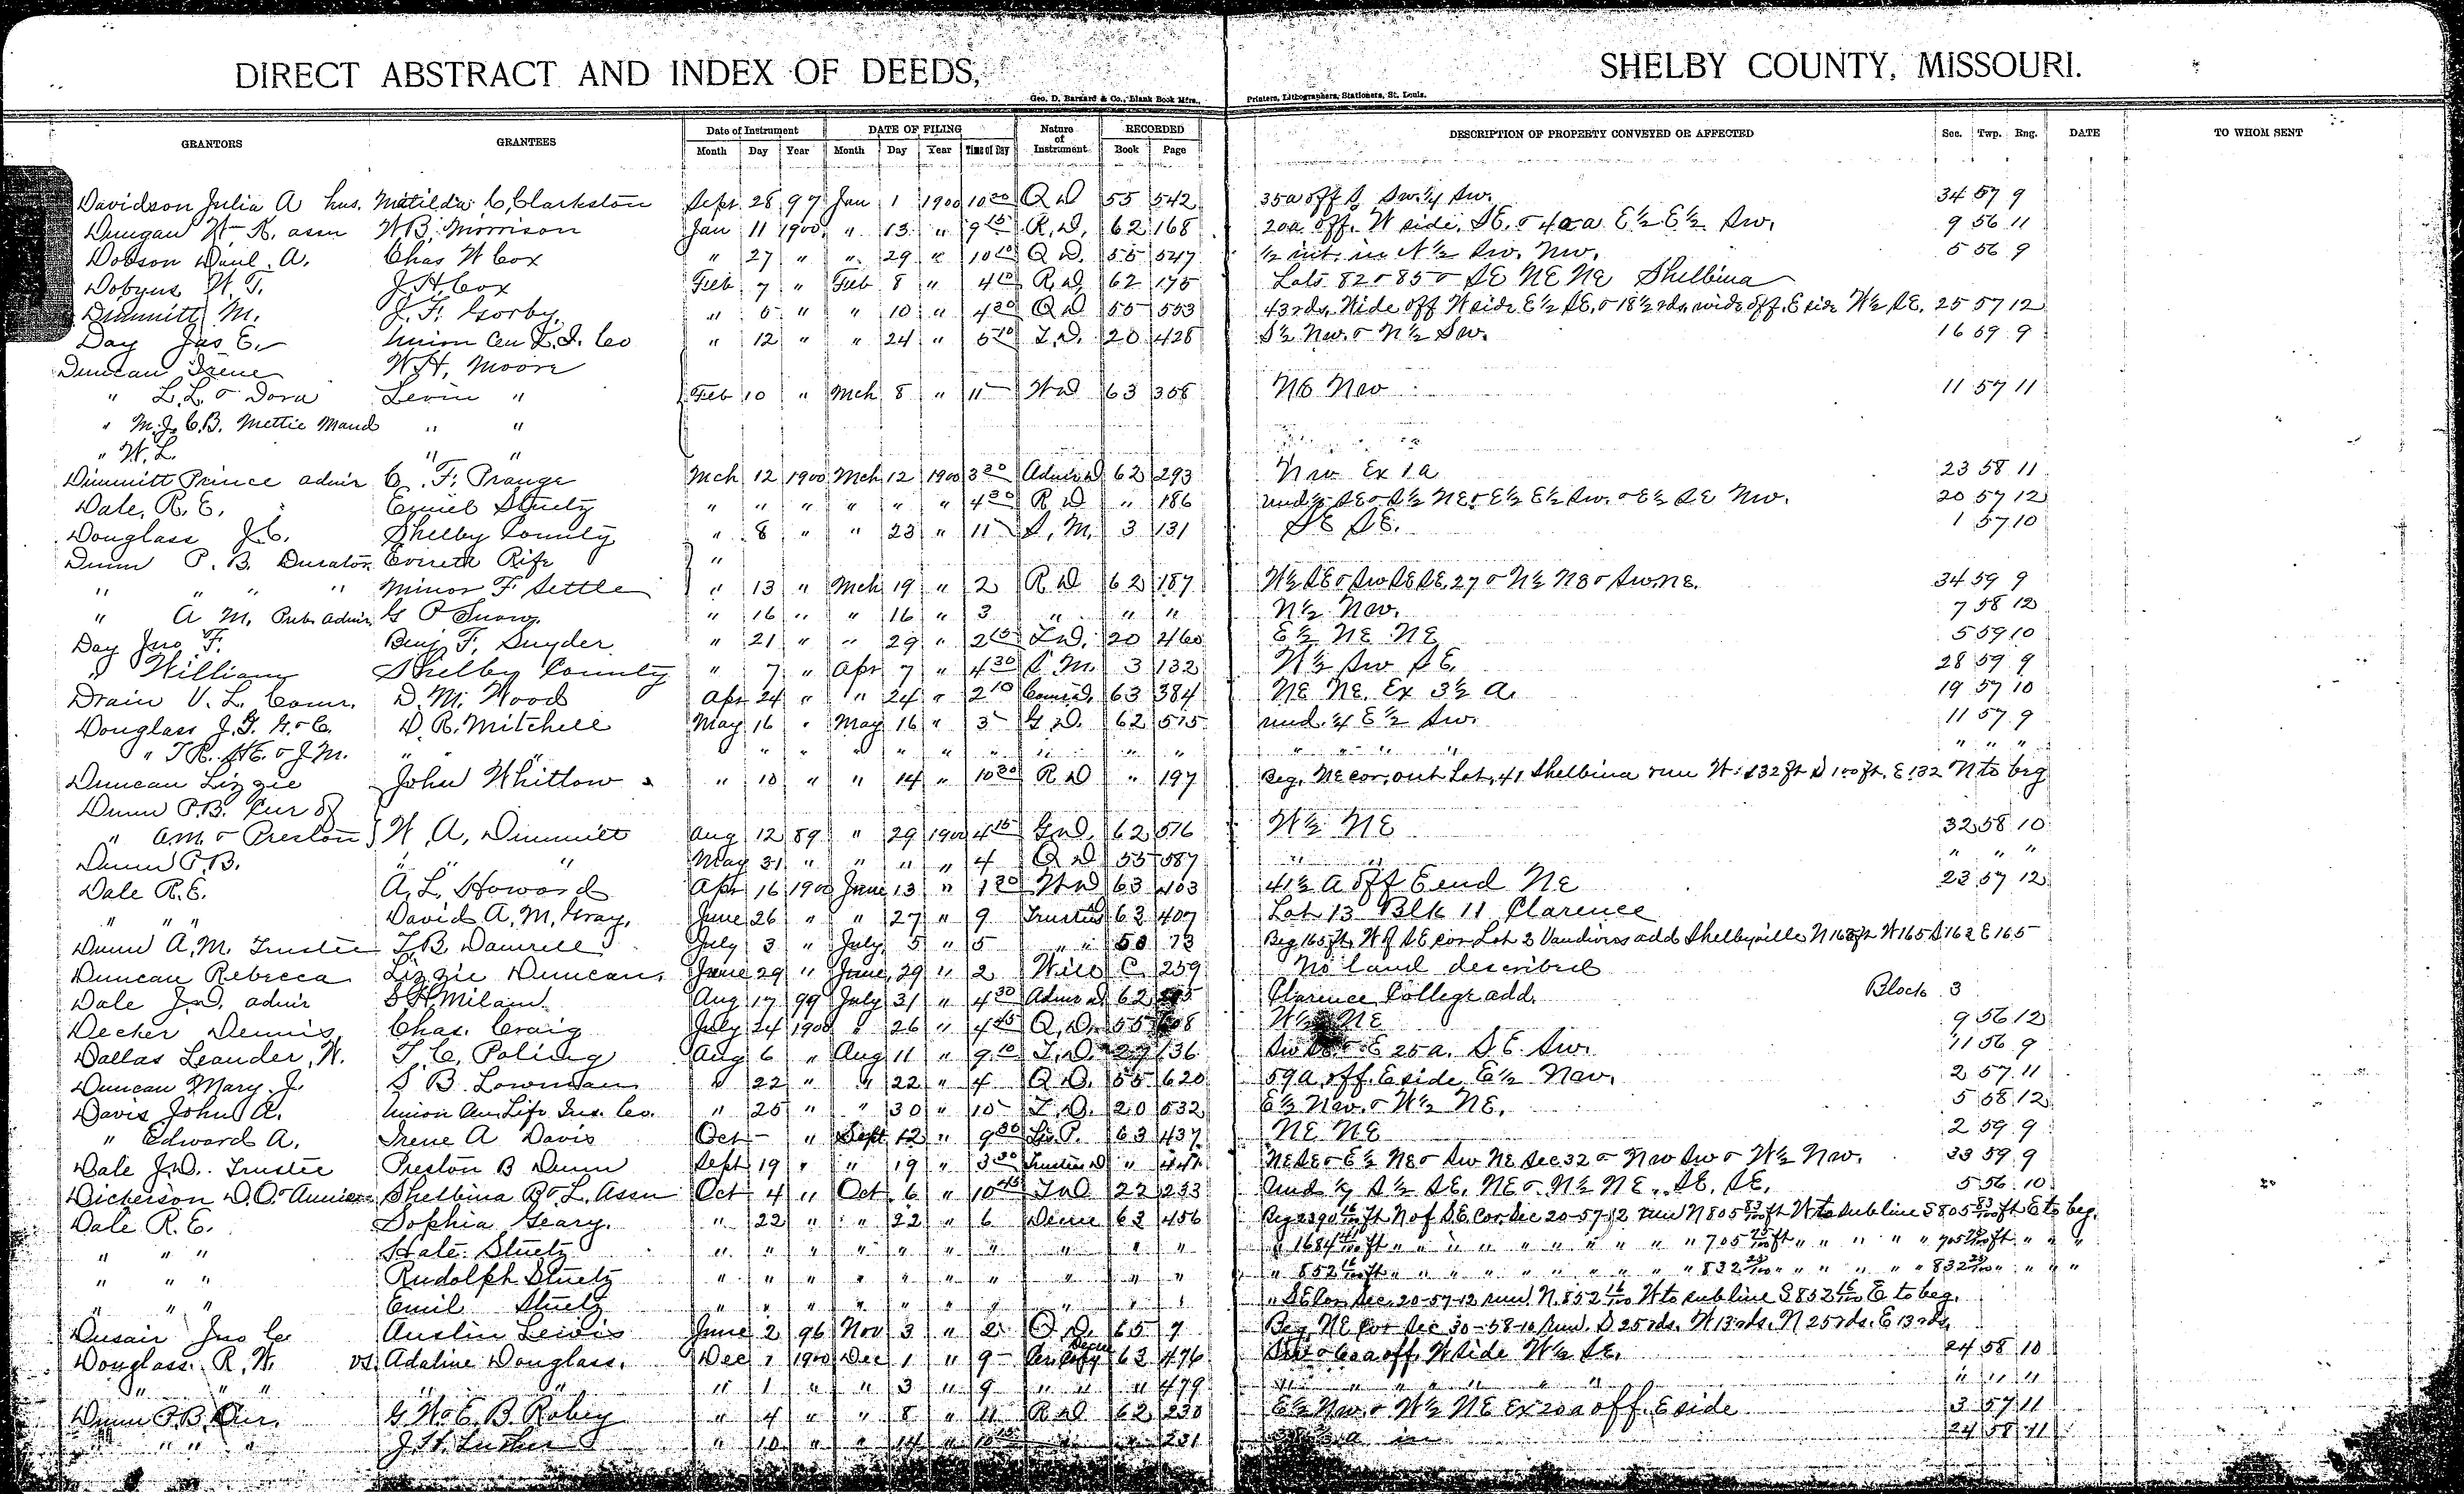 DIRECT ABSTRACT AND INDEX OF DEEDS, SHELBY COUNTY, MISSOURI.
Geo. D. Barnard & Co., Blank Book Mfrs., Printers, Lithographers, Stationers, St. Louis.
GRANTORS GRANTEES Date of Instrument DATE OF FILING Nature of Instrument RECORDED DESCRIPTION OF PROPERTY CONVEYED OR AFFECTED Sec. Twp. Rng. DATE TO WHOM SENT
Month Day Year Month Day Year Time of Day Book Page
Davidson Julia A hus. Matilda C. Clarkston Sept 28 97 Jan 1 1900 10 30 Q D 55 542 35a off S. Sw. 1/4 Sw. 34 57 9
Dungan W. R. assn W B. Morrison Jan 11 1900 " 13 " 9 15 R. D. 62 168 20a off W side, SE. & 40a E ½ E ½ Sw. 9 56 11
Dobson Danl. A. Chas W Cox " 27 " " 29 " 10 10 Q D. 55 547 ½ int. in N ½ Sw. Nw. 5 56 9
Dobyns W. T. J. H. Cox Feb 7 " Feb 8 " 4 10 R. D. 62 175 Lots 82 & 85 & SE NE NE Shelbina
Dimmitt M. J. F. Gorby " 5 " " 10 " 4 30 Q D 55 553 43 rds. Wide off W side E ½ SE. & 18 ½ rds. wide off E side W ½ SE. 25 57 12
Day Jas E. Union Cen L. I. Co " 12 " " 24 " 5 10 T. D. 20 428 S ½ Nw. & N ½ Sw. 16 59 9
Duncan Irene W. H. Moore
" L. L. & Dora Levin " Feb 10 " Mch 8 " 11 W D 63 358 NE Nw 11 57 11
" M. J. C. B. Mettie Maud " "
" W. L. " "
Dimmitt Prince admr C. F. Prange Mch 12 1900 Mch 12 1900 3 30 Admr D 62 293 Nw Ex 1a 23 58 11
Dale, R. E. Emil Stuetz " " " " " " 4 30 R D " 186 und ½ SE & S ½ NE & E ½ E ½ Sw. & E ½ SE Nw. 20 57 12
Douglass J. C. Shelby County " 8 " " 23 " 11 S. M. 3 131 SE SE. 1 57 10
Dunn P. B. Curator Everett Rife "
" " " " Minor F. Settle " 13 " Mch 19 " 2 R D 62 187 W ½ SE & Sw SE SE. 27 & N ½ NE & Sw. NE. 34 59 9
" A M. Pub. Admr. G P Snow " 16 " " 16 " 3 " " " N ½ Nw. 7 58 12
Day Jno. F. Benj. F. Snyder " 21 " " 29 " 2 15 T. D. 20 460 E ½ NE NE 5 59 10
" William Shelby County " 7 " Apr 7 " 4 30 S. M. 3 132 W ½ Sw SE. 28 59 9
Drain V. L. Comr. D. M. Wood Apr 24 " " 24 " 2 10 Com'r D. 63 384 NE NE. Ex 3 ½ a. 19 57 10
Douglass J. G. G. & C. D. R. Mitchell May 16 " May 16 " 3 G. D. 62 575 und. ¼ E ½ Sw. 11 57 9
" T R. H E. & J M. " " " " " " " " " " " " " " " " " " "
Duncan Lizzie John Whitlow " 10 " " 14 " 10 30 R D " 197 Beg. NE cor. out Lot. 41 Shelbina run W. 132 ft S 100 ft. E. 132 N to beg
Dunn P. B. Cur of
" A. M. & Preston } W. A. Dimmitt Aug 12 89 " 29 1900 4 15 G D. 62 576 W ½ NE 32 58 10
Dunn P. B. " " " May 31 " " " " 4 Q D 55 587 " " " " "
Dale R. E. A. L. Howard Apr 16 1900 June 13 " 1 30 W D 63 403 41 ½ A off E end NE 23 57 12
" " " David A. M. Gray. June 26 " " 27 " 9 Trustee D 63 407 Lot 13 Blk 11 Clarence
Dunn A. M. Trustee T. B. Damrell July 3 " July 5 " 5 " " 50 73 Beg 165 ft. W of SE cor Lot 2 Vandivers add Shelbyville N 162 ft W 165 S 162 E 165
Duncan Rebecca Lizzie Duncan June 29 " June 29 " 2 Will C 259 No land described
Dale J. D. admr S. H. Milam Aug 17 99 July 31 " 4 30 Admr D 62 Clarence College add. Block 3
Decker Dennis Chas. Craig July 24 1900 " 26 " 4 45 Q. D. 55 608 W ½ NE 9 56 12
Dallas Leander, W. T. C. Poling Aug 6 " Aug 11 " 9 10 T. D. 136 E 25 a. SE. Sw. 11 56 9
Duncan Mary J. S. B. Lowman " 22 " " 22 " 4 Q. D. 55 620 59 A. off E side E ½ Nw. 2 57 11
Davis John A. Union Cen Life Ins. Co. " 25 " " 30 " 10 T. D. 20 532 E ½ Nw. & W ½ NE. 5 58 12
" Edward A. Irene A Davis Oct - " Sept 12 " 9 30 63 437 NE NE 2 59 9
Dale J. D. Trustee Preston B Dunn Sept 19 " " 19 " 3 30 Trustee D " NE SE & E ½ NE & Sw NE Sec 32 & Nw Sw & W ½ Nw. 33 59 9
Dickerson D. O. & Annie Shelbina B & L. Assn Oct 4 " Oct 6 " 10 45 T D 22 233 Und ½ S ½ SE. NE & N ½ NE. SE. SE. 5 56 10
Dale R. E. Sophia Geary. " 22 " " 22 " 6 Decree 63 456 Beg 2390 16/100 ft N of SE Cor. Sec 20-57-12 run N 805 83/100 ft W to sub line S 805 83/100 ft E to beg.
" " " Hate Stuetz " " " " " " " " " " " 1684 41/100 ft " " " " " " " " " " 705 75/100 ft " " " " " 705 75/100 ft " " "
" " " Rudolph Stuetz " " " " " " " " " " " 852 16/100 ft " " " " " " " " " " 832 25/100 " " " " " 832 25/100 " " " "
" " " Emil Stuetz " " " " " " " " " " " SE Cor. Sec. 20-57-12 run N. 852 16/100 W to sub line S 852 16/100 E to beg.
Dusair Jno C. Austin Lewis June 2 96 Nov 3 " 2 Q D. 65 9 Beg. NE Cor Sec 30-58-10 Run. S 25 rds. W 13 rds. N 25 rds. E 13 rds
Douglass. R. W. vs. Adaline Douglass. Dec 1 1900 Dec 1 " 9 Decree 63 476 60 a off. W side W ½ SE. 24 58 10
" " " " " " 1 " " 3 " 9 " " " 479 " " " " " " " " "
Dunn P. B. Cur. G. W. & E. B. Robey " 4 " " 8 " 11 R D 62 230 E ½ Nw. & W ½ NE Ex 20 a off. E side 3 57 11
" " " " J. H. Luther " 10 " " 14 " 10 " " 231 in 24 58 11